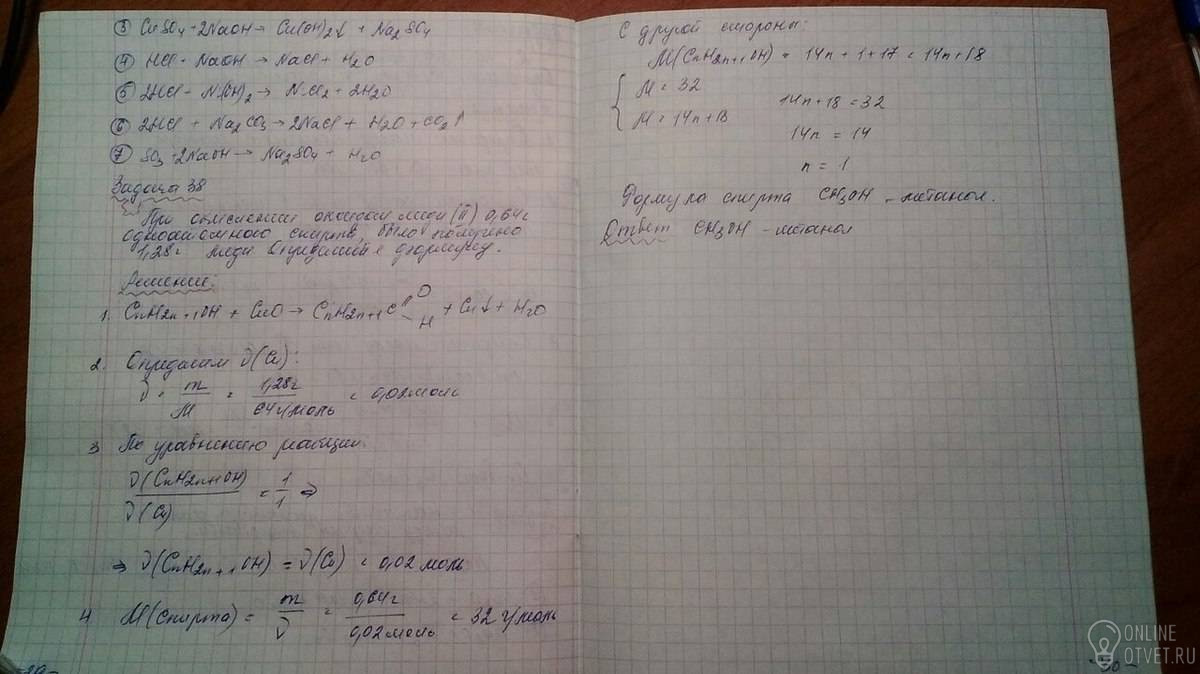 ③ CuSO4 + 2NaOH → Cu(OH)2↓ + Na2SO4
④ HCl + NaOH → NaCl + H2O
⑤ 2HCl + Ni(OH)2 → NiCl2 + 2H2O
⑥ 2HCl + Na2CO3 → 2NaCl + H2O + CO2↑
⑦ SO3 + 2NaOH → Na2SO4 + H2O
Задача 38
При окислении оксидом меди (II) 0,64г
одноатомного спирта, было получено
1,28г меди Определите формулу.
Решение:
1. CnH2n+1OH + CuO → CnH2n+1C=O–H + Cu↓ + H2O
2. Определим ν(Cu):
ν = m/M = 1,28г/64г/моль = 0,02моль
3 По уравнению реакции:
ν(CnH2n+1OH)/ν(Cu) = 1/1 ⇒
⇒ ν(CnH2n+1OH) = ν(Cu) = 0,02 моль
4 M(спирта) = m/ν = 0,64г/0,02моль = 32 г/моль
С другой стороны:
M(CnH2n+1OH) = 14n + 1 + 17 = 14n + 18
{ M = 32
M = 14n + 18
14n + 18 = 32
14n = 14
n = 1
Формула спирта CH3OH - метанол.
Ответ CH3OH - метанол
ONLINE
OTVET.RU